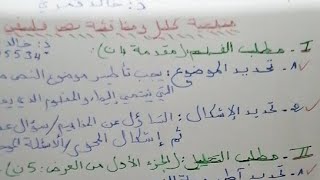 منهجية تحليل ومناقشة نص فلسفي
د: خالد
5534
I - مطلب الفهم (مقدمة 4ن):
1- تحديد الموضوع: يجب تأطير موضوع النص
التي ينتمي إليها والمفهوم الذي
2- تحديد الإشكال: التساؤل عن المفاهيم / سؤال
ثم إشكال المحوري / الأسئلة
II - مطلب التحليل: (الجزء الأول من العرض: 5ن)
1- تحديد